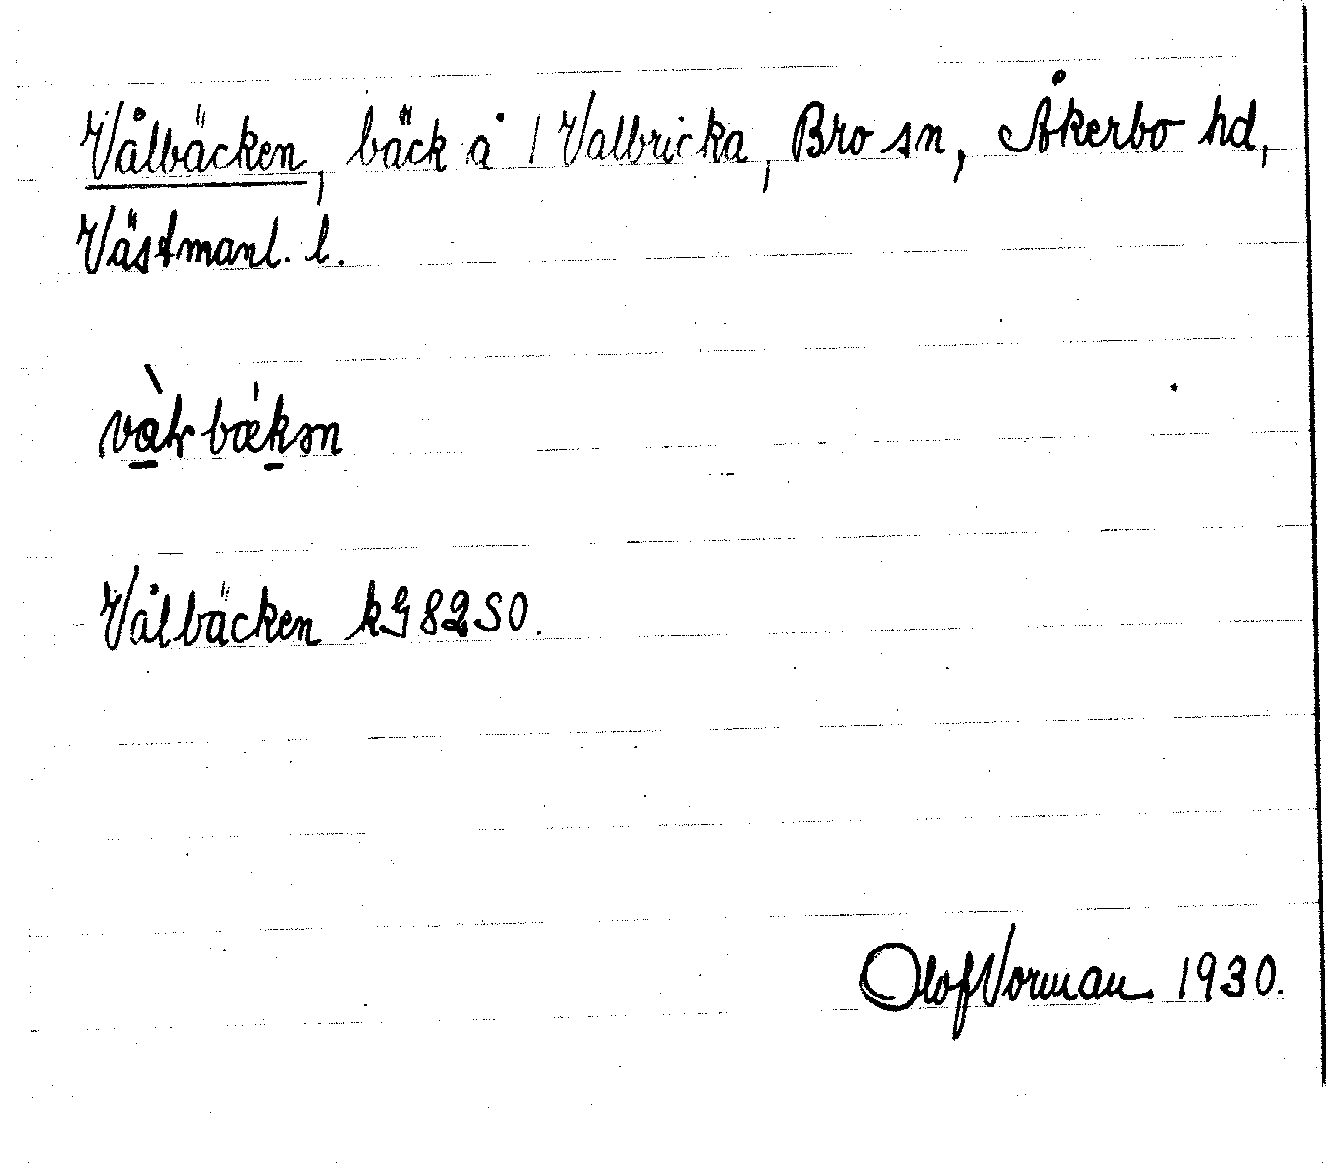 Vålbäcken, bäck å 1 Valbricka, Bro sn, Åkerbo hd,
Västmanl. l.
Vålbäcken kG82SO.
Olof Vorman 1930.